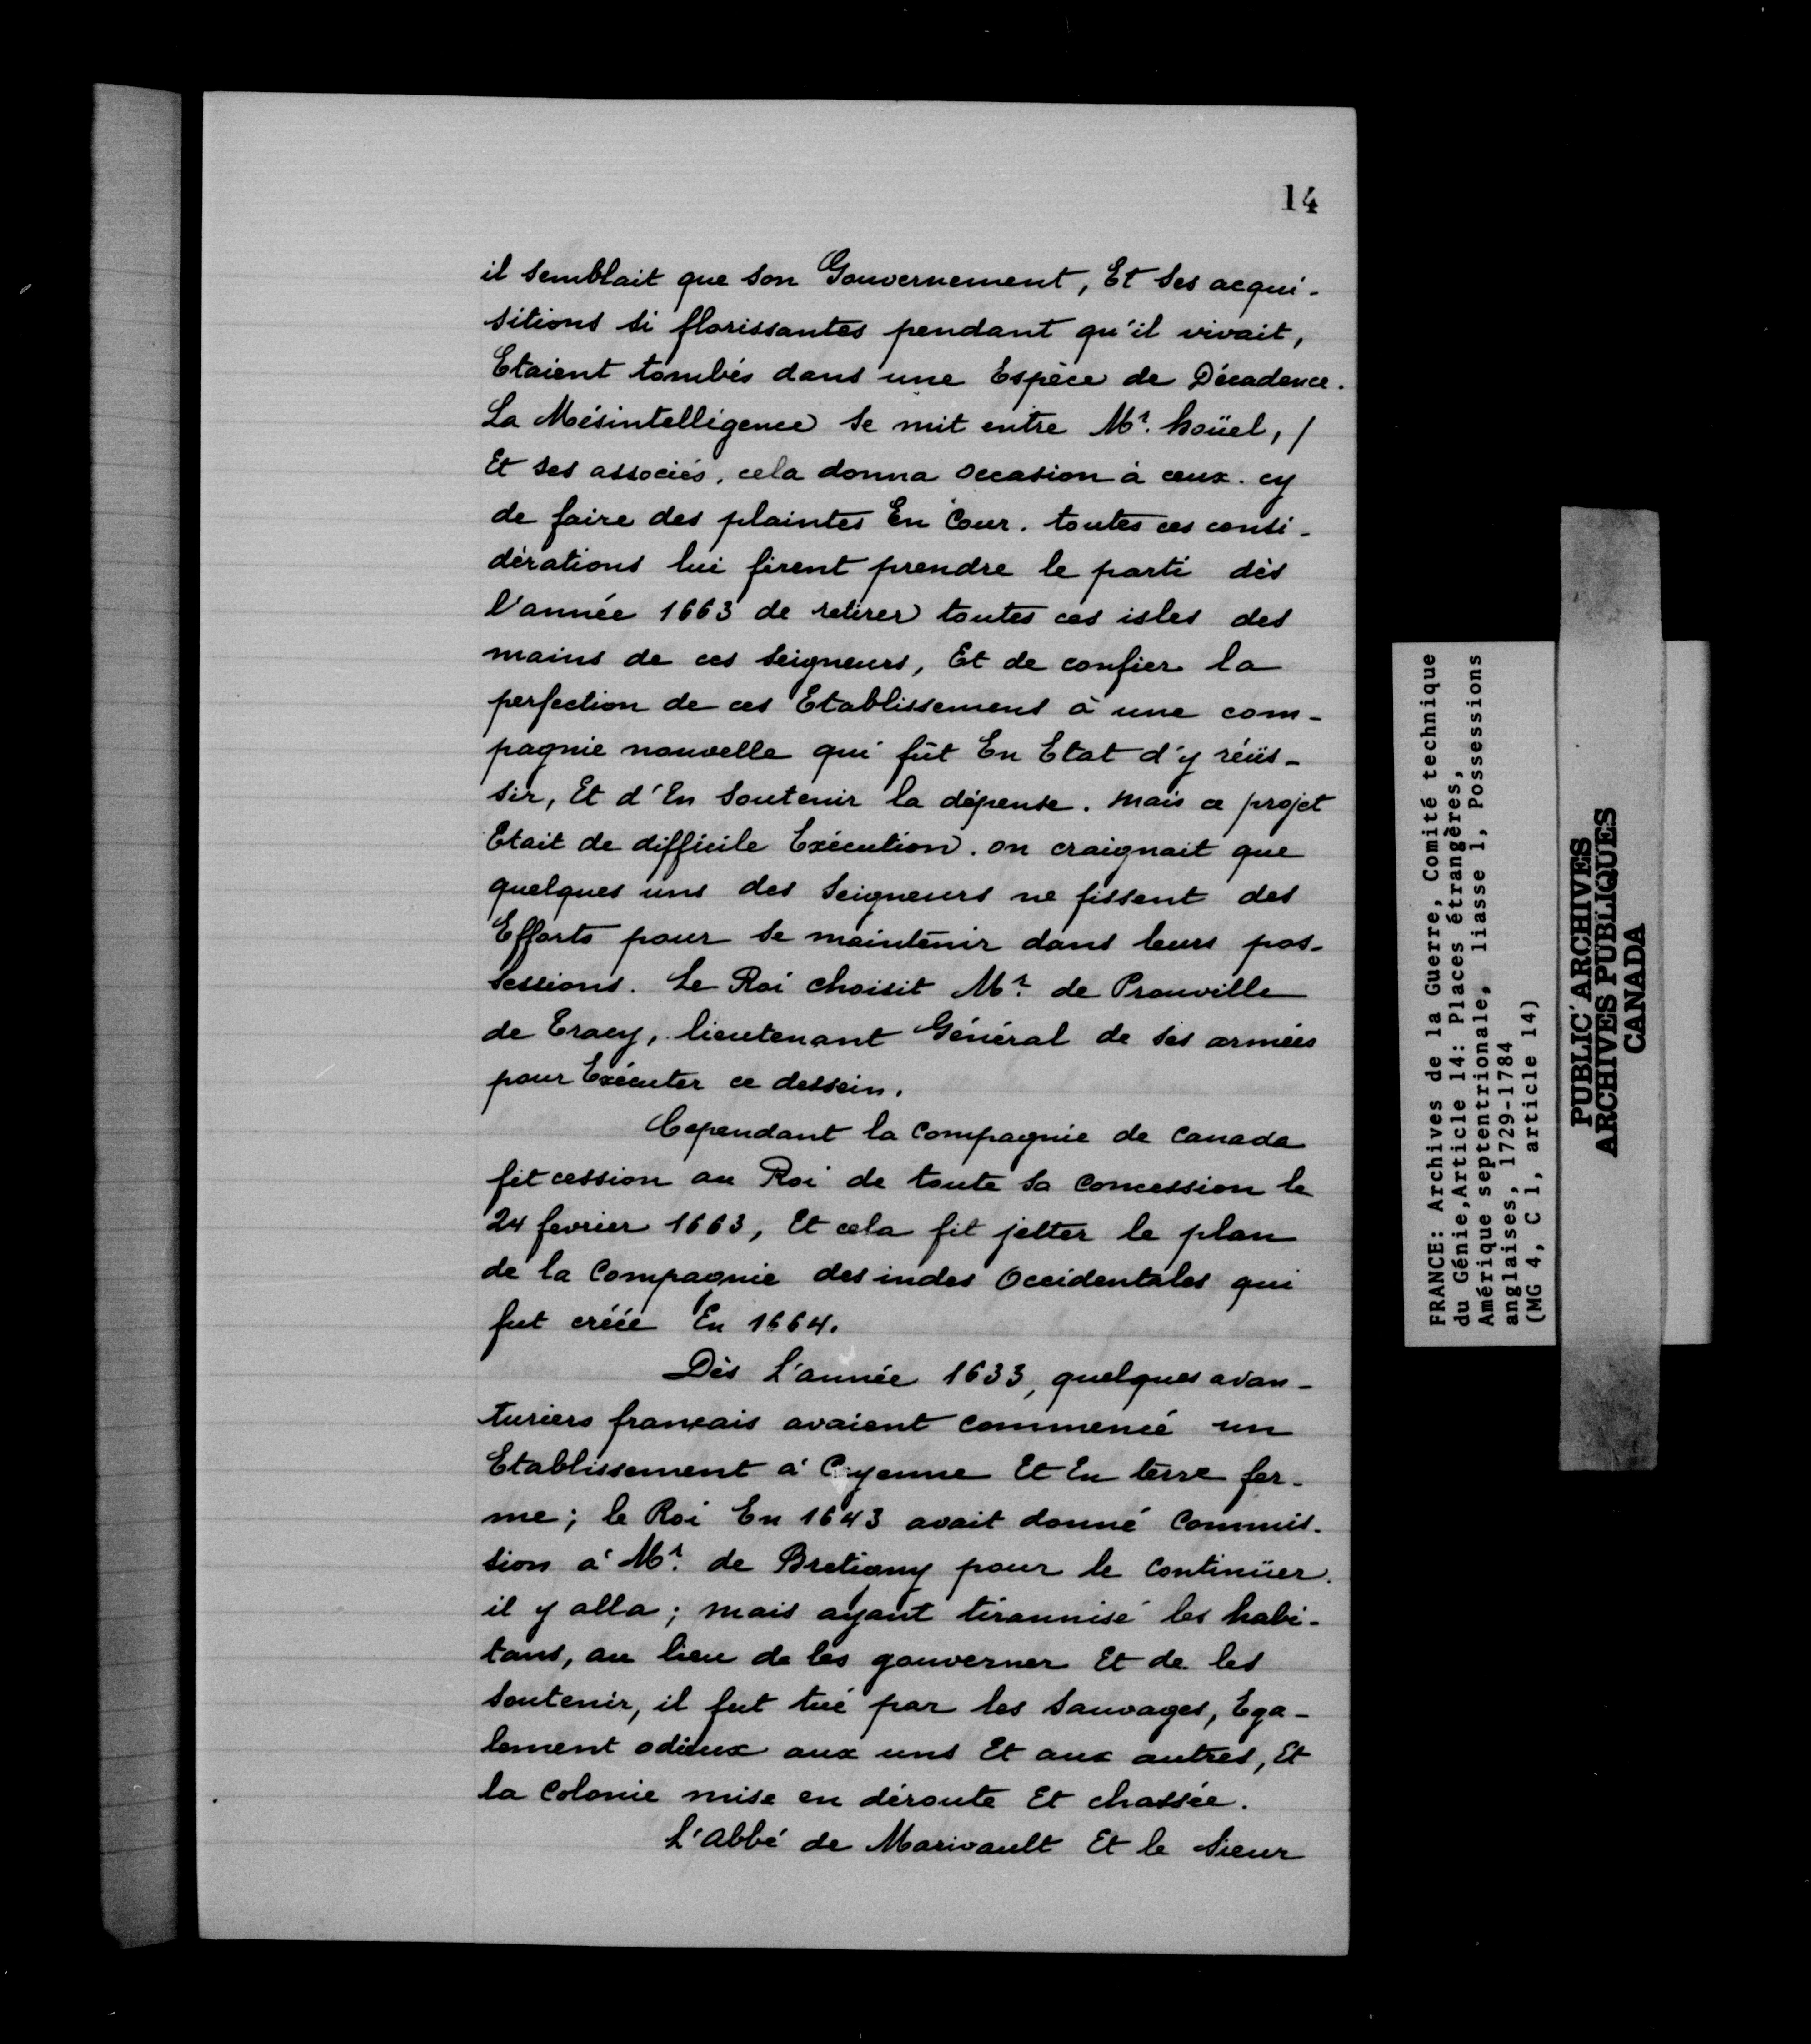 14
il semblait que son Gouvernement, Et ses acqui-
sitions si florissantes pendant qu'il vivait,
Etaient tombés dans une Espèce de Décadence.
La Mésintelligence se mit entre Mr. hoüel, /
Et ses associés, cela donna occasion à ceux. cy
de faire des plaintes En Cour. toutes ces consi-
dérations lui firent prendre le parti dès
l'année 1663 de retirer toutes ces isles des
mains de ces seigneurs, Et de confier la
perfection de ces Etablissemens à une com-
pagnie nouvelle qui fût En Etat d'y réüs-
sir, Et d'En soutenir la dépense. mais ce projet
Etait de difficile Exécution. on craignait que
quelques uns des seigneurs ne fissent des
Efforts pour se maintenir dans leurs pos-
sessions. Le Roi choisit Mr. de Prouville
de Tracy, lieutenant Général de ses armées
pour Exécuter ce dessein.
Cependant la compagnie de Canada
fit cession au Roi de toute sa concession le
24 fevrier 1663, Et cela fit jetter le plan
de la Compagnie des indes Occidentales qui
fut créée En 1664.
Dès L'année 1633, quelques avan-
turiers français avaient commencé un
Etablissement à Cayenne Et En terre fer-
me; le Roi En 1643 avait donné Commis-
sion à Mr. de Bretigny pour le continüer.
il y alla; mais ayant tirannisé les habi-
tans, au lieu de les gouverner Et de les
soutenir, il fut tué par les sauvages, Ega-
lement odieux aux uns Et aux autres, Et
la Colonie mise en déroute Et chassée.
L'abbé de Marivault Et le Sieur
FRANCE: Archives de la Guerre, Comité technique
du Génie,Article 14: Places étrangères,
Amérique septentrionale, liasse 1, Possessions
anglaises, 1729-1784
(MG 4, C 1, article 14)
PUBLIC ARCHIVES
ARCHIVES PUBLIQUES
CANADA